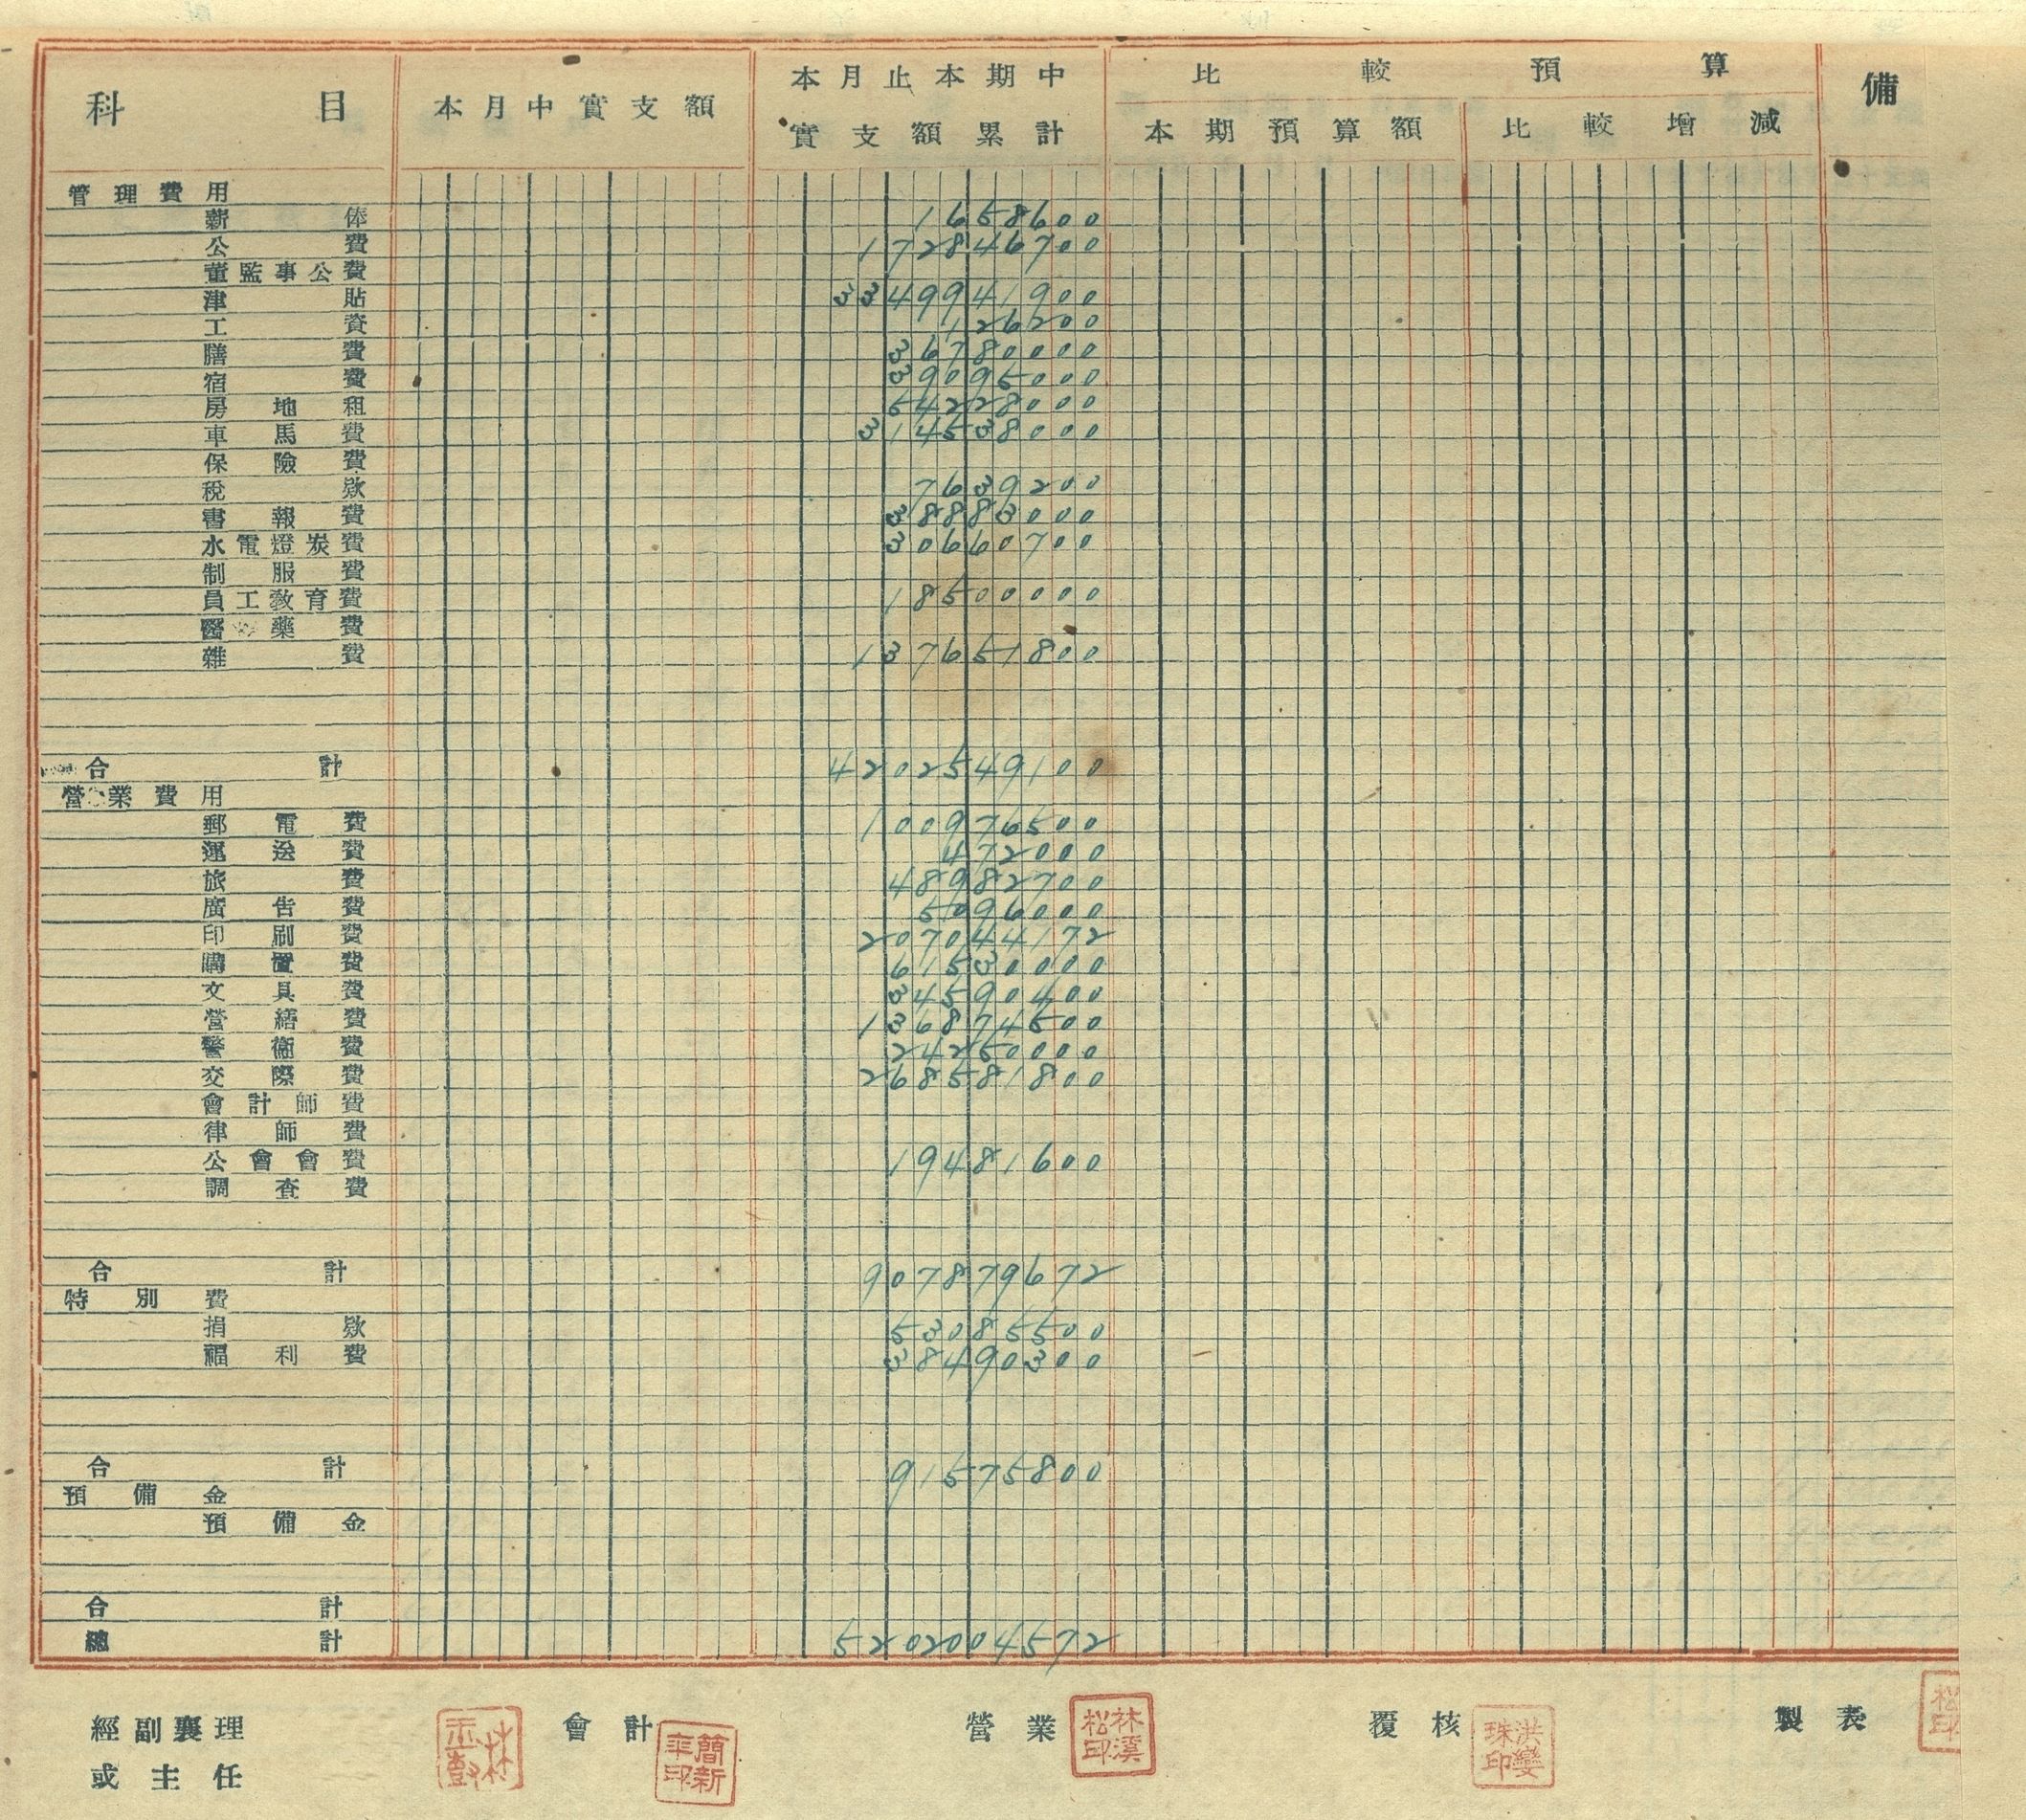 科目 本月中實支額 本月止本期中實支額累計 比較預算 備
本期預算額 比較增減
管理費用
薪俸 1658600
公費 172846700
董監事公費
津貼 3349941900
工資 126200
膳費 36780000
宿費 39095000
房地租 54228000
車馬費 314538000
保險費
稅欵 7639200
書報費 38883000
水電燈炭費 30660700
制服費
員工教育費 18500000
醫藥費
雜費 137651800
合計 4202549100
營業費用
郵電費 100976500
運送費 472000
旅費 48982700
廣告費 5096000
印刷費 207044172
購置費 61530000
文具費 34590400
營繕費 136874500
警衞費 24250000
交際費 268581800
會計師費
律師費
公會會費 19481600
調查費
合計 907879672
特別費
捐欵 53085500
福利費 38490300
合計 91575800
預備金
預備金
合計
總計 5202004572
經副襄理或主任 會計 簡新平印 營業 林溪松印 覆核 洪孌珠印 製表